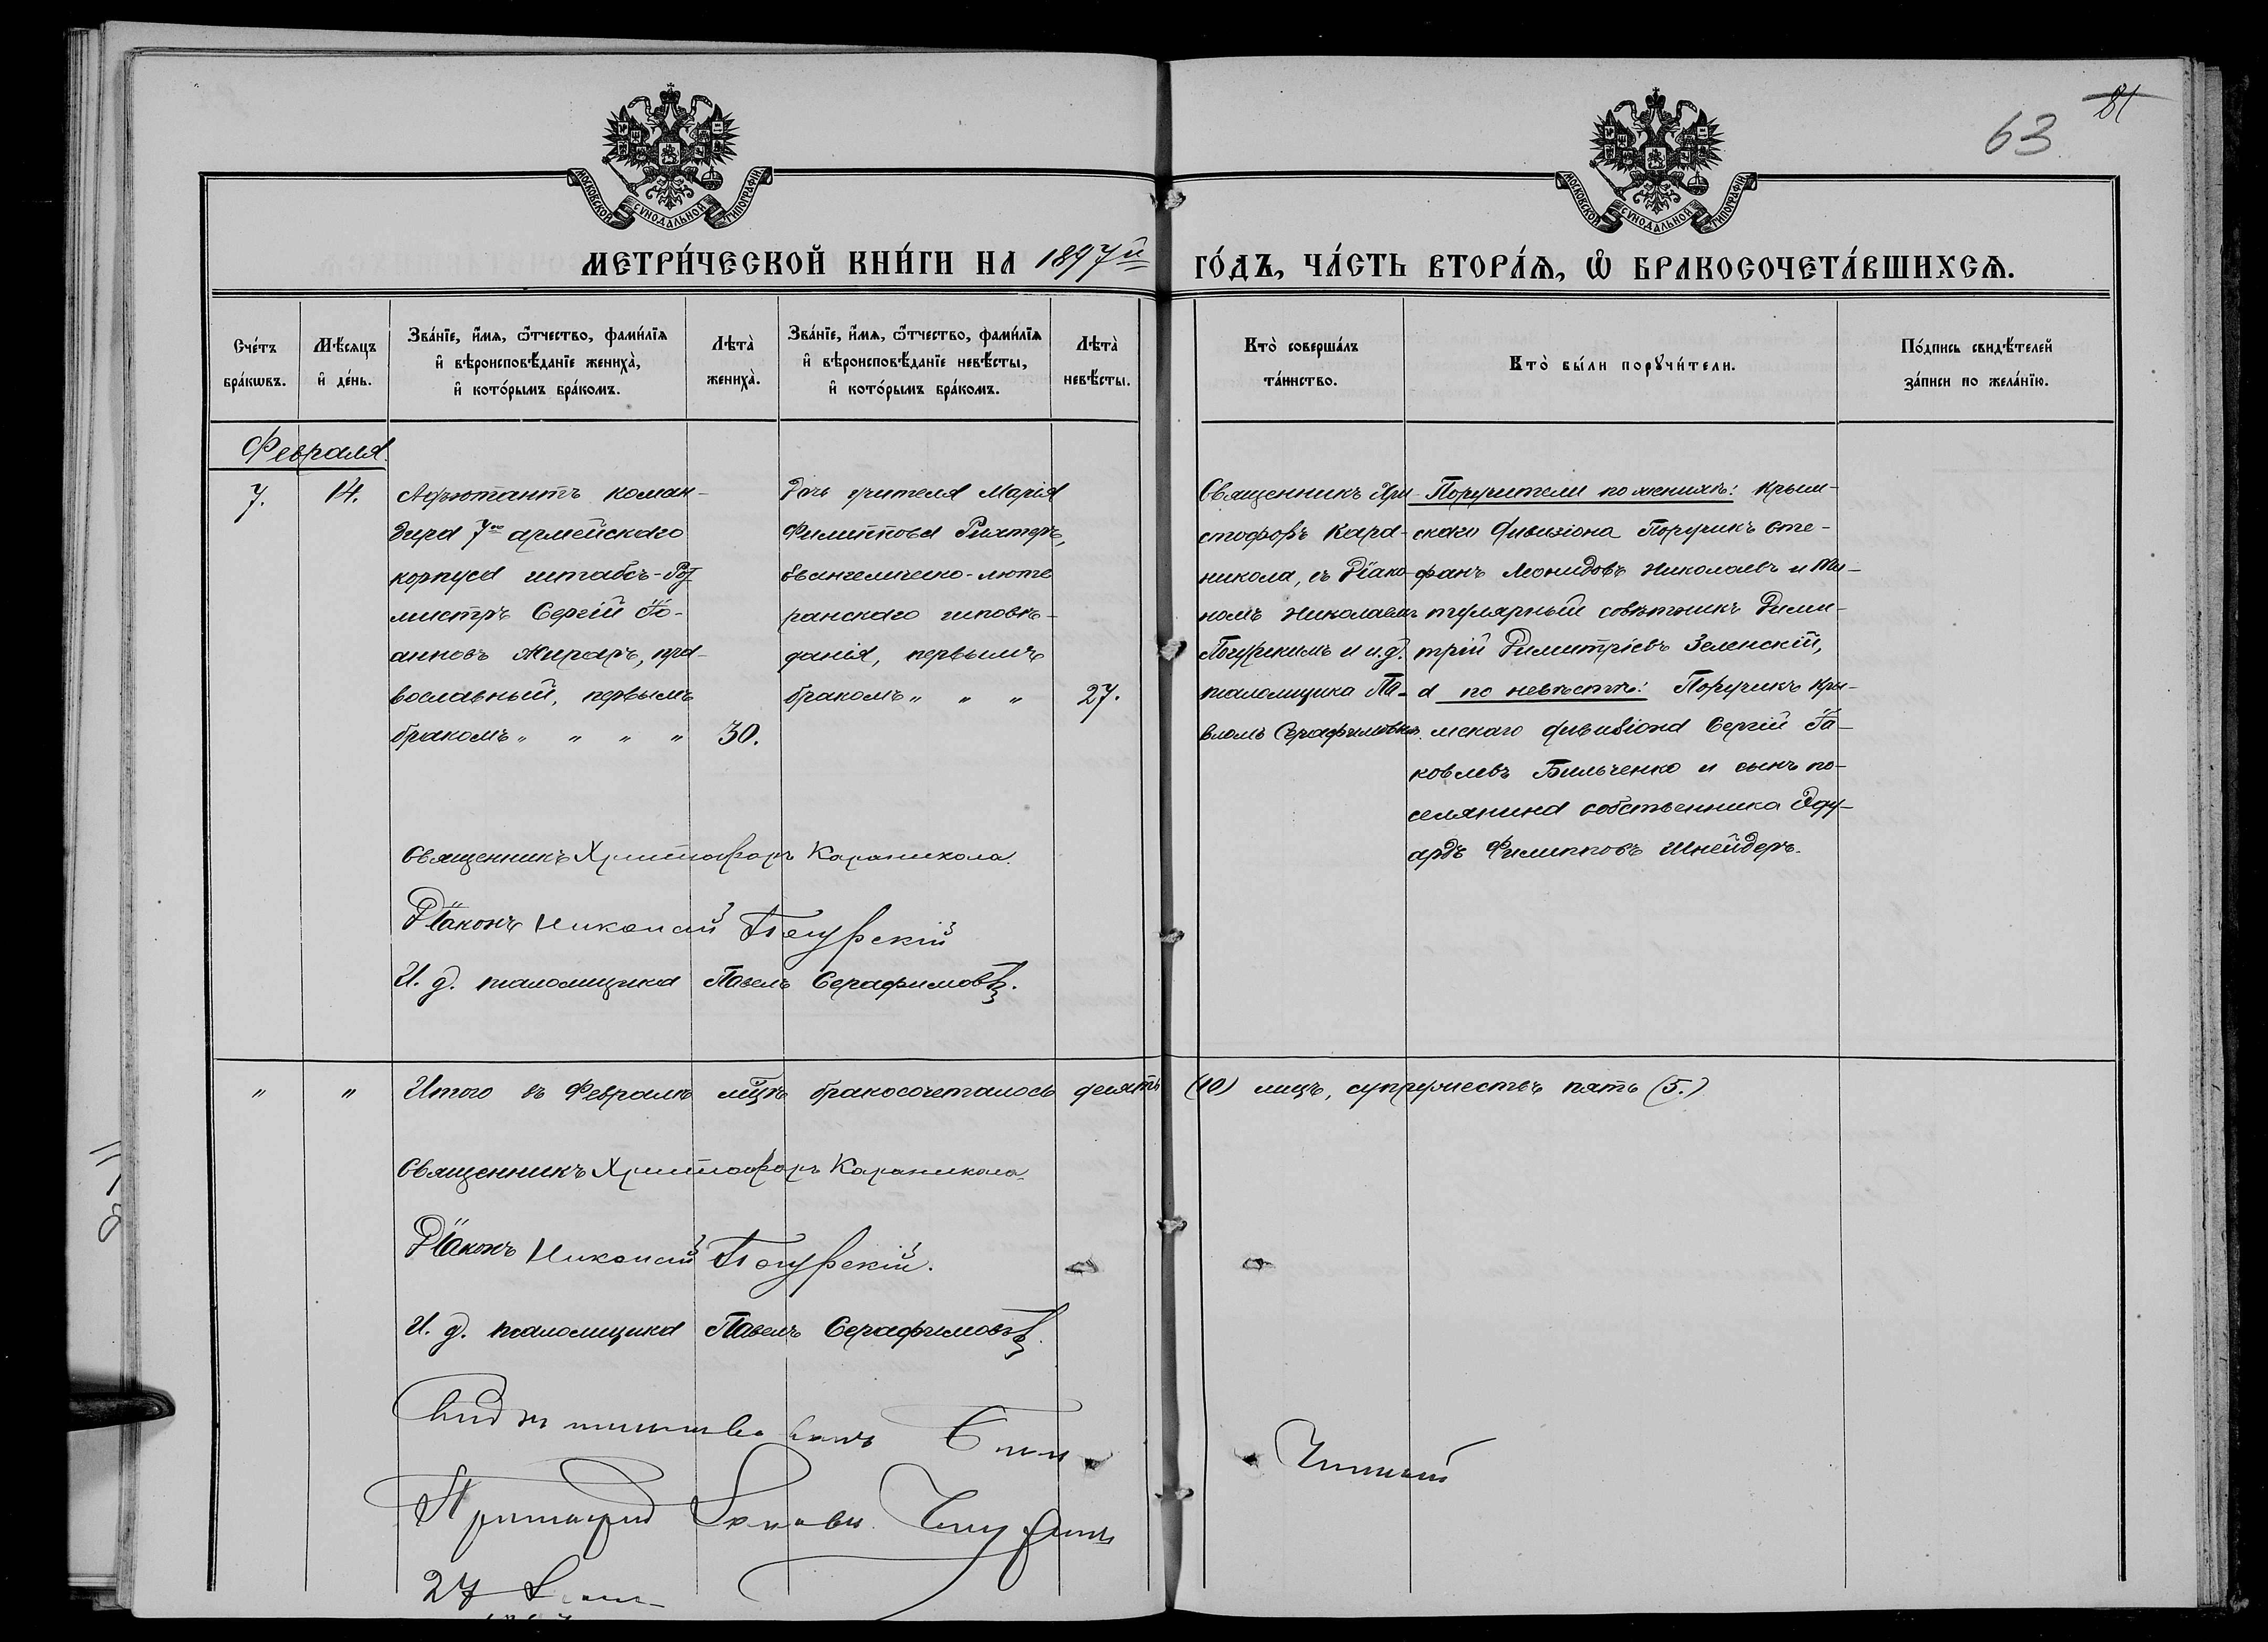 63
81
МОСКОВСКОЙ СѴНОДАЛЬНОЙ ТИПОГРАФІИ
МОСКОВСКОЙ СѴНОДАЛЬНОЙ ТИПОГРАФІИ
МЕТРИ́ЧЕСКОЙ КНИ́ГИ НА 1897й ГО́ДЪ, ЧА́СТЬ ВТОРА́Ѧ, Ѽ БРАКОСОЧЕТА́ВШИХСѦ.
Сче́тъ
бра́кѡвъ.
Мѣ́сяцъ
и҆ де́нь.
Зва́нїе, и҆́мѧ, ѻ҆́тчество, фами́лїѧ
и҆ вѣроисповѣ́данїе жениха̀,
и҆ кото́рымъ бра́комъ.
Лѣта̀
жениха̀.
Зва́нїе, и҆́мѧ, ѻ҆́тчество, фами́лїѧ
и҆ вѣроисповѣ́данїе невѣ́сты,
и҆ кото́рымъ бра́комъ.
Лѣта̀
невѣ́сты.
Кто̀ соверша́лъ
та́инство.
Кто̀ бы́ли порꙋчи́тели.
По́дпись свидѣ́телей
за́писи по жела́нїю.
Февраля.
7.
14.
Адъютантъ коман-
дира 7го армейскаго
корпуса штабсъ-Рот
мистръ Сергій Іо-
анновъ Жираръ, пра-
вославный, первымъ
бракомъ „ „ „ „
30.
Дочь учителя Марія
Филиппова Рихтеръ,
Евангелическо-люте
ранскаго исповѣ-
данія, первымъ
бракомъ „ „ „
27.
Священникъ Хри-
стофоръ Кара-
никола, съ Діако-
номъ Николаемъ
Погурскимъ и и.д.
псаломщика Па-
вломъ Серафимовымъ.
Поручители по женихѣ: Крым-
скаго дивизіона Поручикъ Сте-
фанъ Леонидовъ Николаевъ и Ти-
тулярный совѣтникъ Дими-
трій Димитріевъ Зеленскій,
а по невѣстѣ: Поручикъ Кры-
мскаго дивизіона Сергій Іа-
ковлевъ Бильченко и сынъ по-
селянина собственника Эду-
ардъ Филипповъ Шнейдеръ.
Священникъ Христофоръ Караникола.
Діаконъ Николай Погурскій
И. д. псаломщика Павелъ Серафимовъ.
„ „ Итого въ Февралѣ мѣцѣ бракосочеталось десять (10) лицъ, супружествъ пять (5.)
Священникъ Христофоръ Караникола
Діаконъ Николай Погурскій.
И. д. псаломщика Павелъ Серафимовъ.
Свидѣтельствовалъ
27